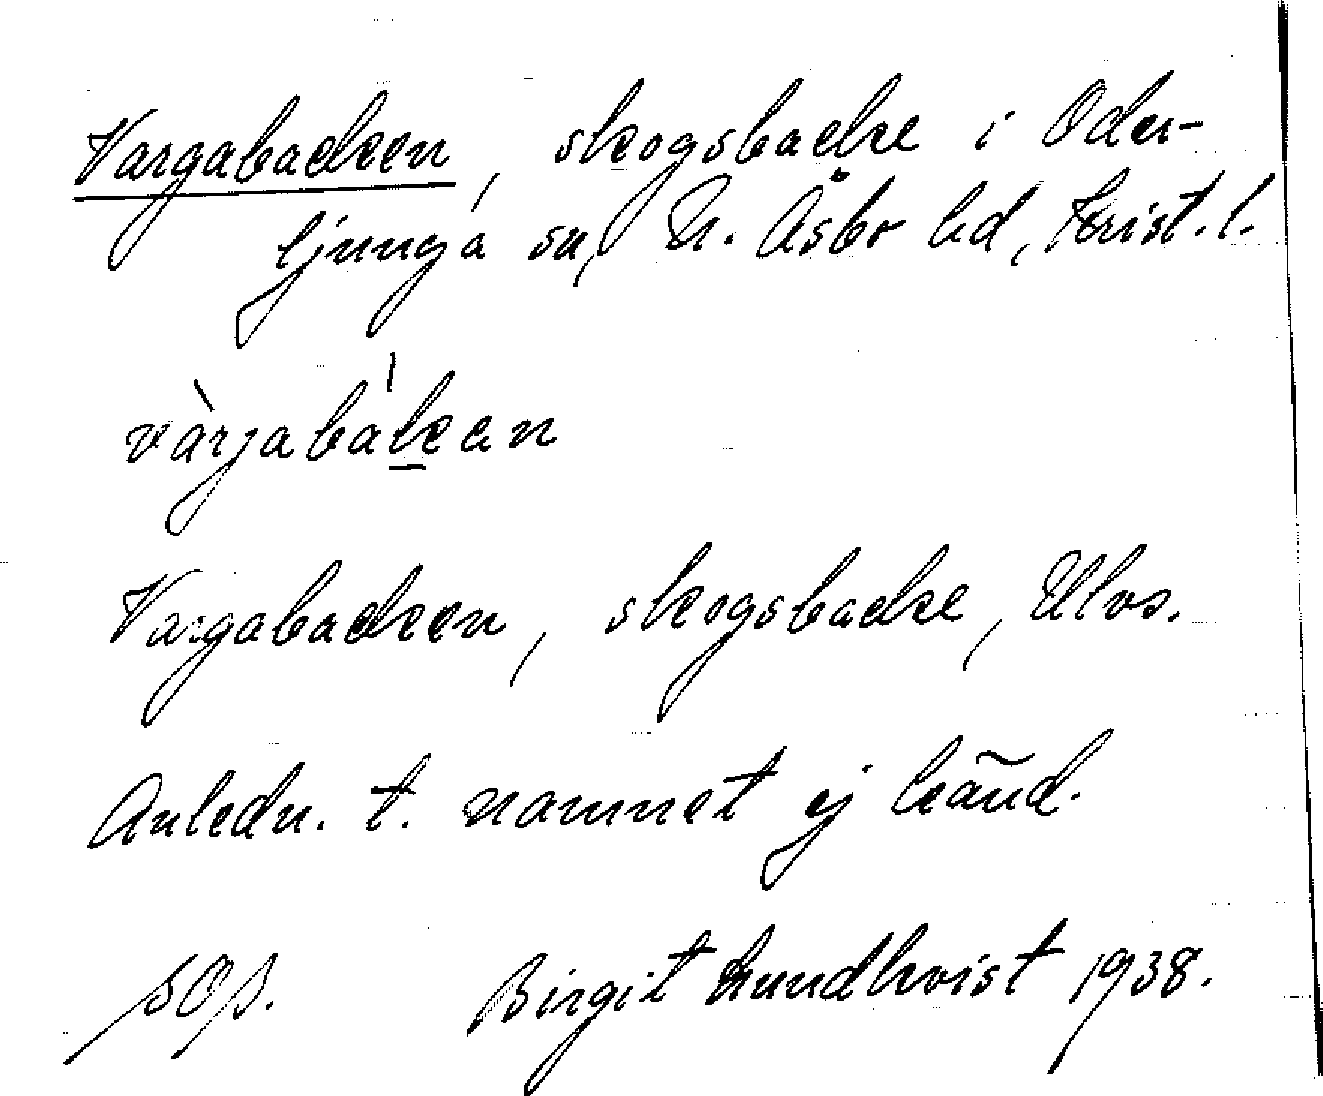 Vargabacken, skogsbacke i Oder-
ljunga sn, N. Åsbo hd, Krist. l.
vàrjabàkan
Vargabacken, skogsbacke,
Anledn. t. namnet ej känd.
Birgit Lundkvist 1938.